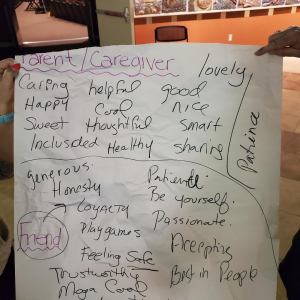 Parent/Caregiver
lovely
Caring helpful good
Happy Cool nice
Sweet thoughtful smart
Inclusded Healthy sharing
Patince
generous.
Honesty
Be yourself.
Loyalty
Passionate.
Friend
Play games
Accepting
Feeling Safe
Best in People
Trustworthy
Mega Cool